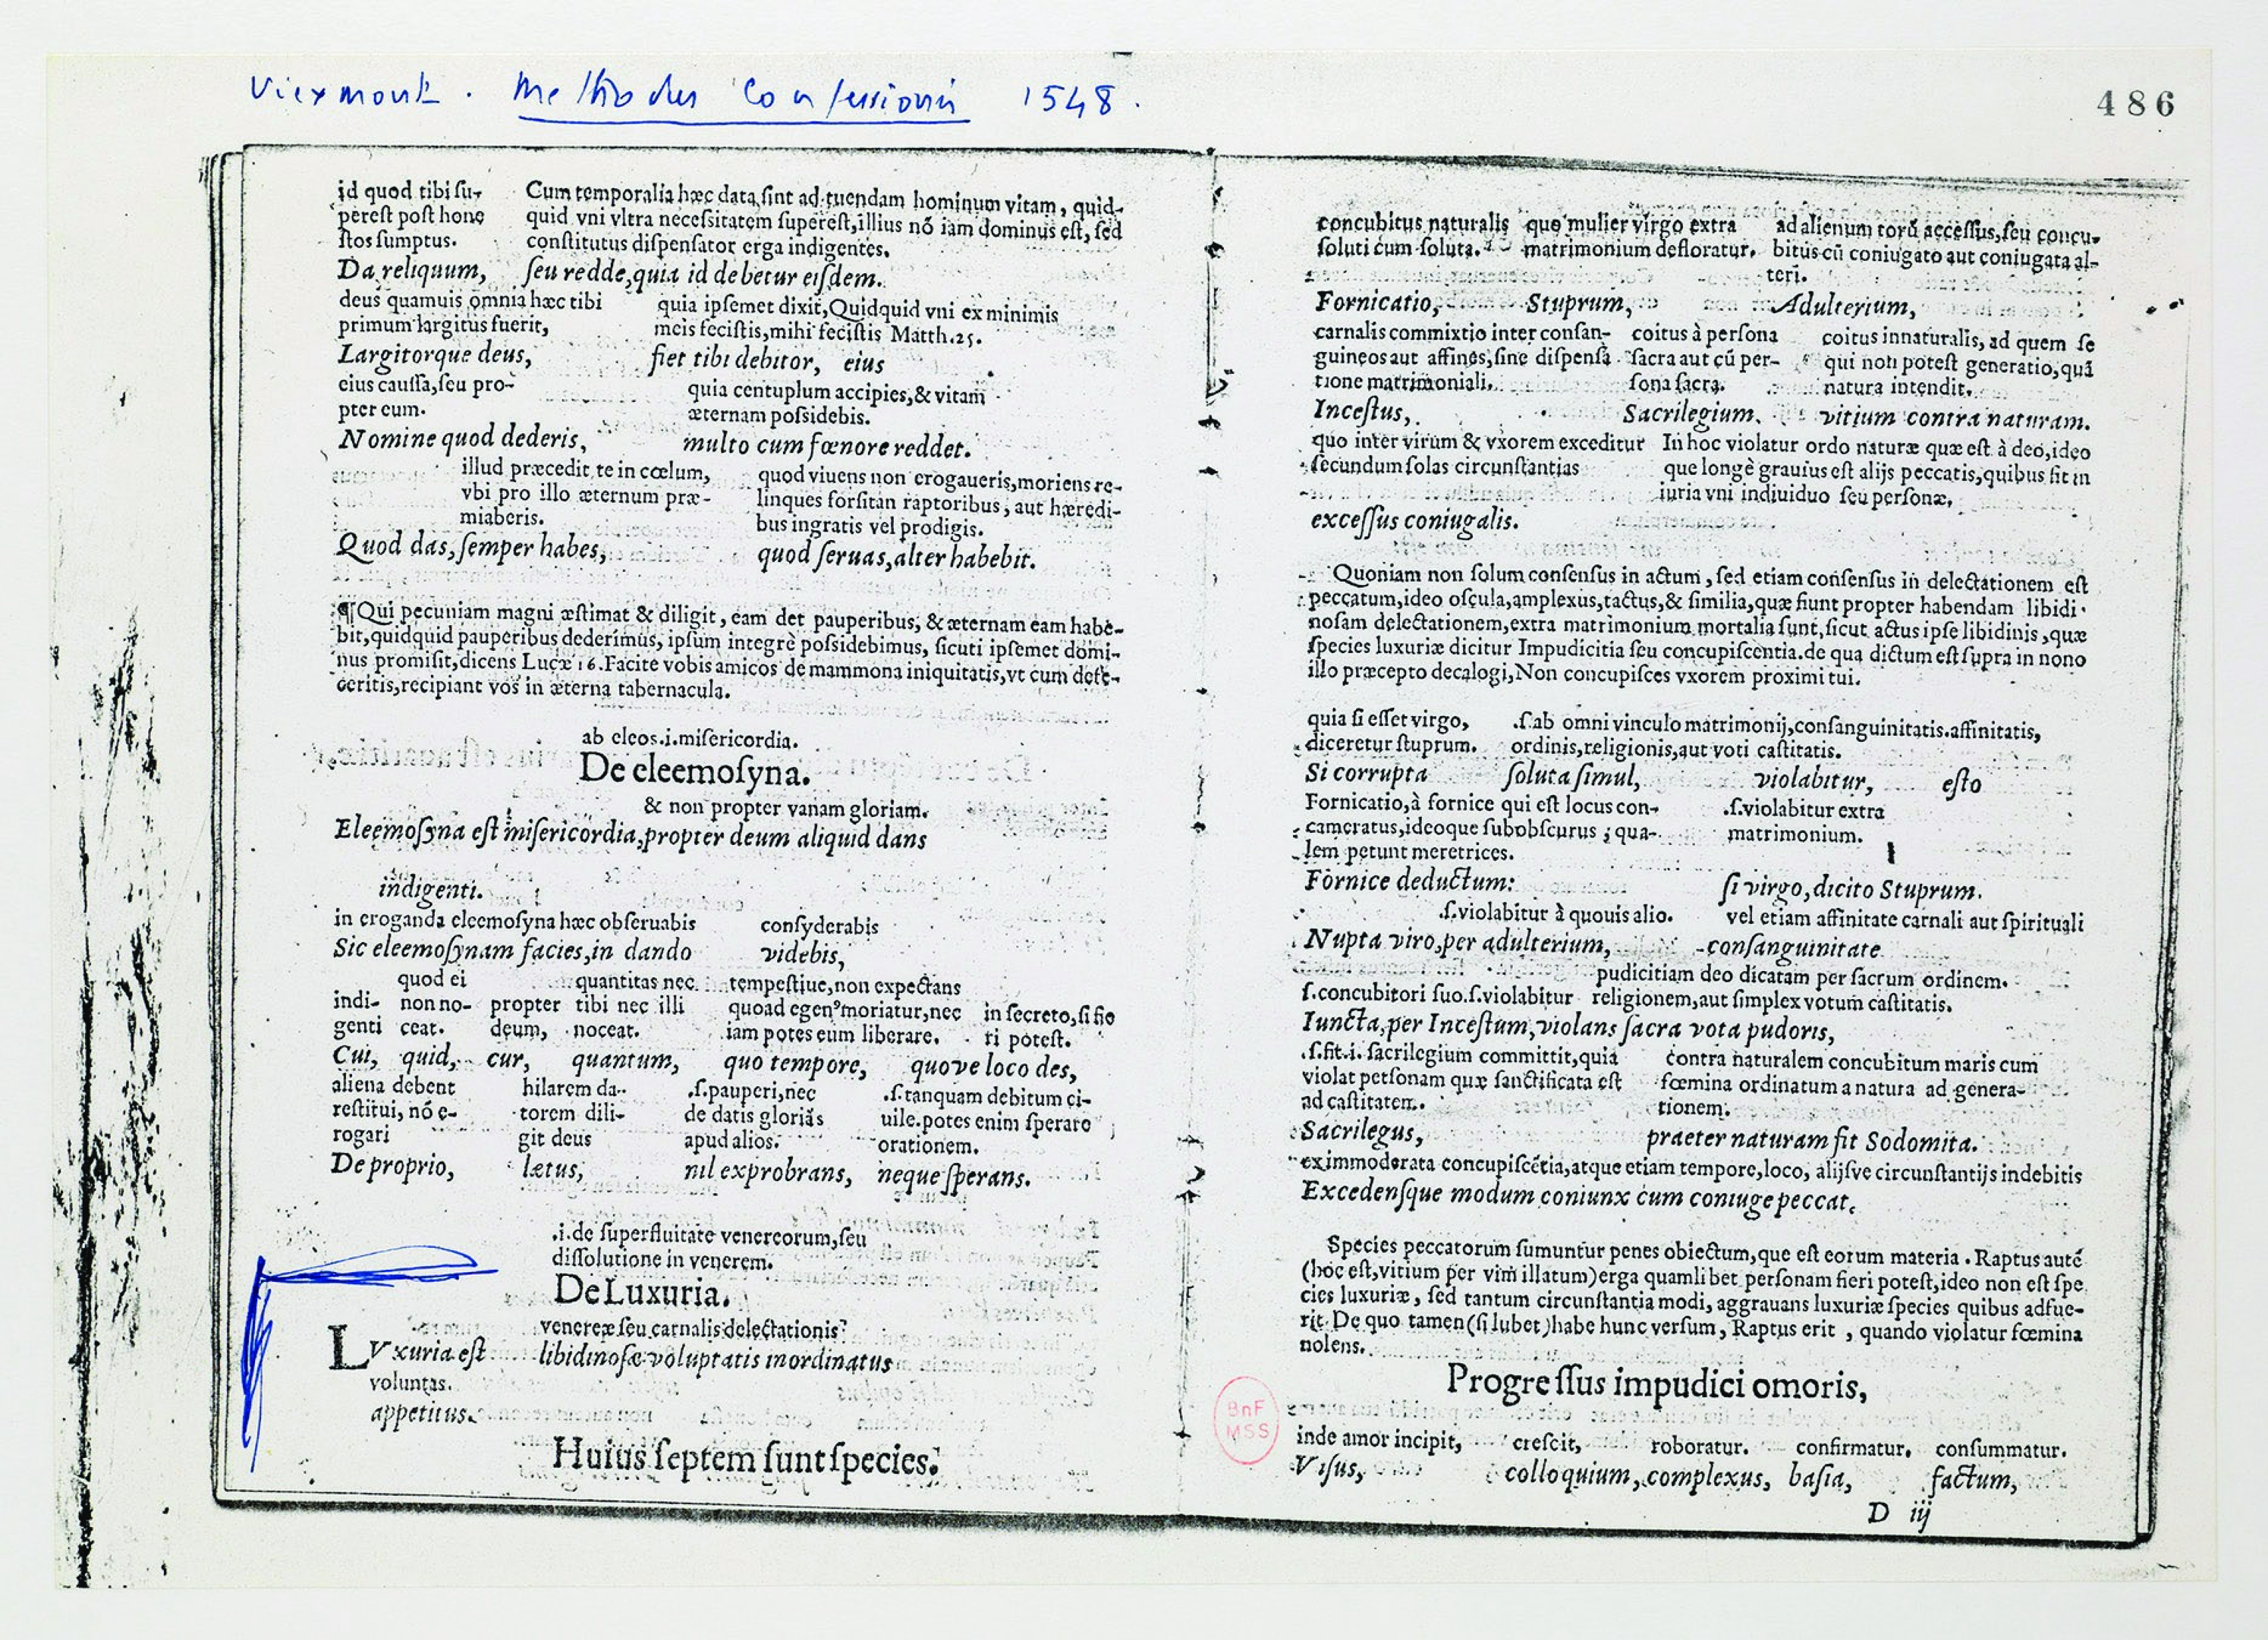 Viexmont. Methodus Confessionis 1548.
486
id quod tibi ſu-
pereſt poſt hone
ſtos ſumptus.
Cum temporalia hæc data ſint ad tuendam hominum vitam, quid-
quid vni vltra neceſsitatem ſupereſt, illius nõ iam dominus eſt, ſed
conſtitutus diſpenſator erga indigentes.
Da reliquum, ſeu redde, quia id debetur eiſdem.
deus quamuis omnia hæc tibi
primum largitus fuerit,
quia ipſemet dixit, Quidquid vni ex minimis
meis feciſtis, mihi feciſtis Matth.25.
Largitorque deus, fiet tibi debitor, eius
eius cauſſa, ſeu pro-
pter eum.
quia centuplum accipies, & vitam
æternam poſsidebis.
Nomine quod dederis, multo cum fœnore reddet.
illud præcedit te in cœlum,
vbi pro illo æternum præ-
miaberis.
quod viuens non erogaueris, moriens re-
linques forſitan raptoribus, aut hæredi-
bus ingratis vel prodigis.
Quod das, ſemper habes, quod ſeruas, alter habebit.
¶Qui pecuniam magni æſtimat & diligit, eam det pauperibus, & æternam eam habe-
bit, quidquid pauperibus dederimus, ipſum integrè poſsidebimus, ſicuti ipſemet domi-
nus promiſit, dicens Lucæ 16. Facite vobis amicos de mammona iniquitatis, vt cum defe-
ceritis, recipiant vos in æterna tabernacula.
ab eleos.i.miſericordia.
De eleemoſyna.
& non propter vanam gloriam.
Eleemoſyna eſt miſericordia, propter deum aliquid dans
indigenti.
in eroganda eleemoſyna hæc obſeruabis conſyderabis
Sic eleemoſynam facies, in dando videbis,
quod ei quantitas nec tempeſtiue, non expectans
indi- non no- propter tibi nec illi quoad egenꝰ moriatur, nec in ſecreto, ſi fie
genti ceat. deum, noceat. iam potes eum liberare. ri poteſt.
Cui, quid, cur, quantum, quo tempore, quove loco des,
aliena debent hilarem da- .ſ.pauperi, nec .ſ.tanquam debitum ci-
reſtitui, nõ e- torem dili- de datis gloriãs uile. potes enim ſperare
rogari git deus apud alios. orationem.
De proprio, lætus, nil exprobrans, neque ſperans.
.i.de ſuperfluitate venereorum, ſeu
diſſolutione in venerem.
De Luxuria.
venereæ ſeu carnalis delectationis
LVxuria eſt libidinoſæ voluptatis inordinatus
voluntas.
appetitus.
Huius ſeptem ſunt ſpecies.
concubitus naturalis
ſoluti cum ſoluta.
quo mulier virgo extra
matrimonium defloratur.
ad alienum torũ acceſſus, ſeu concu-
bitus cũ coniugato aut coniugata al-
teri.
Fornicatio, Stuprum, Adulterium,
carnalis commixtio inter conſan-
guineos aut affines, ſine diſpenſa
tione matrimoniali.
coitus à perſona
ſacra aut cũ per-
ſona ſacra.
coitus innaturalis, ad quem ſe
qui non poteſt generatio, quã
natura intendit.
Inceſtus, Sacrilegium. vitium contra naturam.
quo inter virum & vxorem exceditur
ſecundum ſolas circunſtantias
In hoc violatur ordo naturæ quæ eſt à deo, ideo
que longè grauius eſt alijs peccatis, quibus fit in
iuria vni indiuiduo ſeu perſonæ.
exceſſus coniugalis.
Quoniam non ſolum conſenſus in actum, ſed etiam conſenſus in delectationem eſt
peccatum, ideo oſcula, amplexus, tactus, & ſimilia, quæ fiunt propter habendam libidi-
noſam delectationem, extra matrimonium mortalia ſunt, ſicut actus ipſe libidinis, quæ
ſpecies luxuriæ dicitur Impudicitia ſeu concupiſcentia. de qua dictum eſt ſupra in nono
illo præcepto decalogi, Non concupiſces vxorem proximi tui.
quia ſi eſſet virgo,
diceretur ſtuprum.
.ſ.ab omni vinculo matrimonij, conſanguinitatis. affinitatis,
ordinis, religionis, aut voti caſtitatis.
Si corrupta ſoluta ſimul, violabitur, eſto
Fornicatio, à fornice qui eſt locus con-
cameratus, ideoque ſubobſcurus, qua-
lem petunt meretrices.
.ſ.violabitur extra
matrimonium.
Fornice deductum: ſi virgo, dicito Stuprum.
.ſ.violabitur à quouis alio. vel etiam affinitate carnali aut ſpirituali
Nupta viro, per adulterium, conſanguinitate
pudicitiam deo dicatam per ſacrum ordinem.
ſ.concubitori ſuo.ſ.violabitur religionem, aut ſimplex votum caſtitatis.
Iuncta, per Inceſtum, violans ſacra vota pudoris,
.ſ.fit.i. ſacrilegium committit, quia
violat perſonam quæ ſanctificata eſt
ad caſtitatem.
contra naturalem concubitum maris cum
fœmina ordinatum a natura ad genera-
tionem.
Sacrilegus, praeter naturam fit Sodomita.
ex immoderata concupiſcẽtia, atque etiam tempore, loco, alijſve circunſtantijs indebitis
Excedenſque modum coniunx cum coniuge peccat.
Species peccatorum ſumuntur penes obiectum, que eſt eorum materia. Raptus autẽ
(hoc eſt, vitium per vim illatum) erga quamlibet perſonam fieri poteſt, ideo non eſt ſpe
cies luxuriæ, ſed tantum circunſtantia modi, aggrauans luxuriæ ſpecies quibus adfue-
rit. De quo tamen (ſi lubet) habe hunc verſum, Raptus erit, quando violatur fœmina
nolens.
Progreſſus impudici omoris,
inde amor incipit, creſcit, roboratur. confirmatur. conſummatur.
Viſus, colloquium, complexus, baſia, factum,
D iij
BnF
MSS